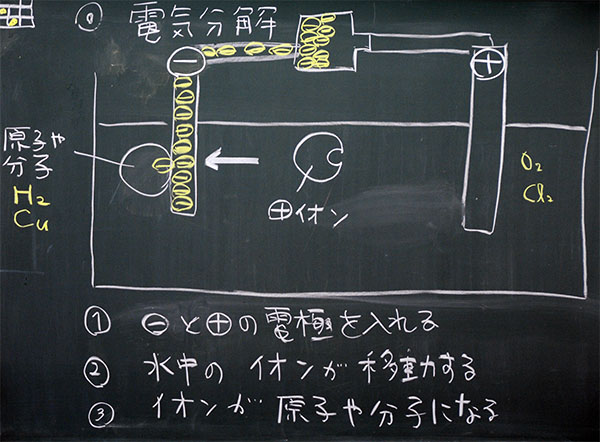 ◎ 電気分解
⊖
⊕
原子や
分子
H₂
Cu
⊕イオン
O₂
Cl₂
① ⊖と⊕の電極を入れる
② 水中のイオンが移動する
③ イオンが原子や分子になる